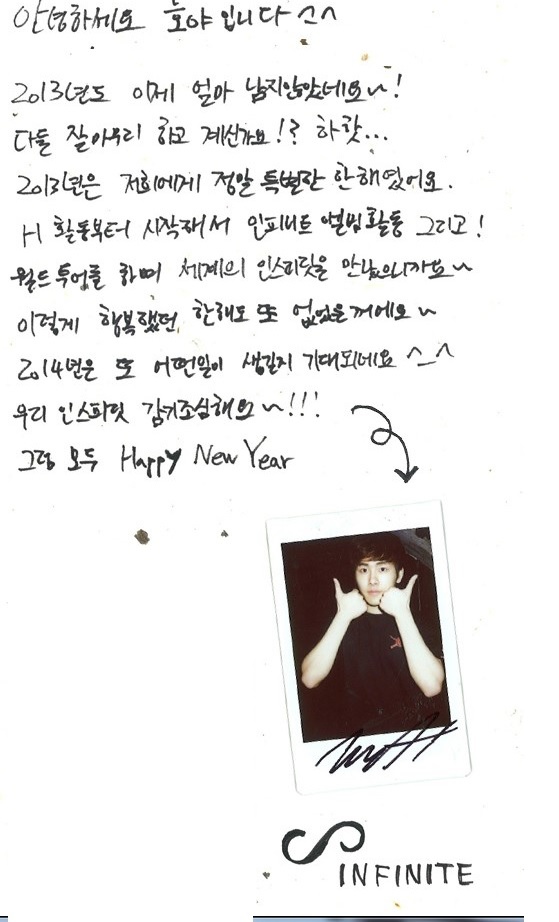 안녕하세요 호야입니다 ^^
2013년도 이제 얼마 남지않았네요~!
다들 잘마무리 하고 계신가요!? 하핫...
2013년은 저희에게 정말 특별한 한해였어요.
H 활동부터 시작해서 인피니트 앨범활동 그리고!
월드투어를 하며 세계의 인스피릿을 만났으니까요~
이렇게 행복했던 한해도 또 없었을꺼에요~
2014년은 또 어떤일이 생길지 기대되네요 ^_^
우리 인스피릿 감기조심해요~!!!
그럼 모두 Happy New Year
INFINITE